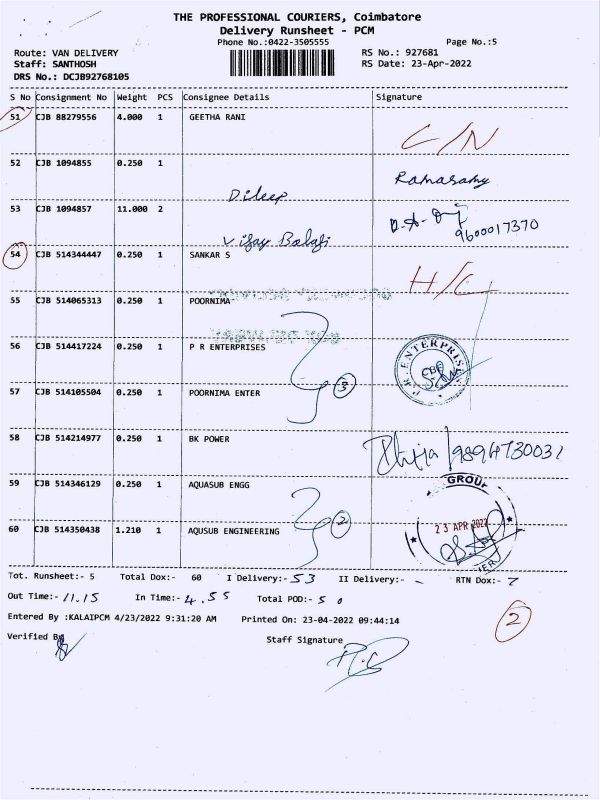 THE PROFESSIONAL COURIERS, Coimbatore
Delivery Runsheet - PCM
Phone No.:0422-3505555 Page No.:5
Route: VAN DELIVERY RS No.: 927681
Staff: SANTHOSH RS Date: 23-Apr-2022
DRS No.: DCJB92768105
S No Consignment No Weight PCS Consignee Details Signature
51 CJB 88279556 4.000 1 GEETHA RANI
C/N
52 CJB 1094855 0.250 1 Ramasamy
Dileep
53 CJB 1094857 11.000 2
9600017370
Vijay Balaji
54 CJB 514344447 0.250 1 SANKAR S H/C
55 CJB 514065313 0.250 1 POORNIMA
56 CJB 514417224 0.250 1 P R ENTERPRISES P.R. ENTERPRISES CBE
57 CJB 514105504 0.250 1 POORNIMA ENTER 3
58 CJB 514214977 0.250 1 BK POWER
59 CJB 514346129 0.250 1 AQUASUB ENGG GROUP
60 CJB 514350438 1.210 1 AQUSUB ENGINEERING 2 23 APR 2022
Tot. Runsheet:- 5 Total Dox:- 60 I Delivery:- 53 II Delivery:- - RTN Dox:- 7
Out Time:- 11.15 In Time:- 4.55 Total POD:- 50
Entered By :KALAIPCM 4/23/2022 9:31:20 AM Printed On: 23-04-2022 09:44:14 2
Verified By Staff Signature